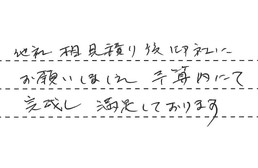 他社 相見積り後 御社に
お願いしました 予算内にて
完成し 満足しております